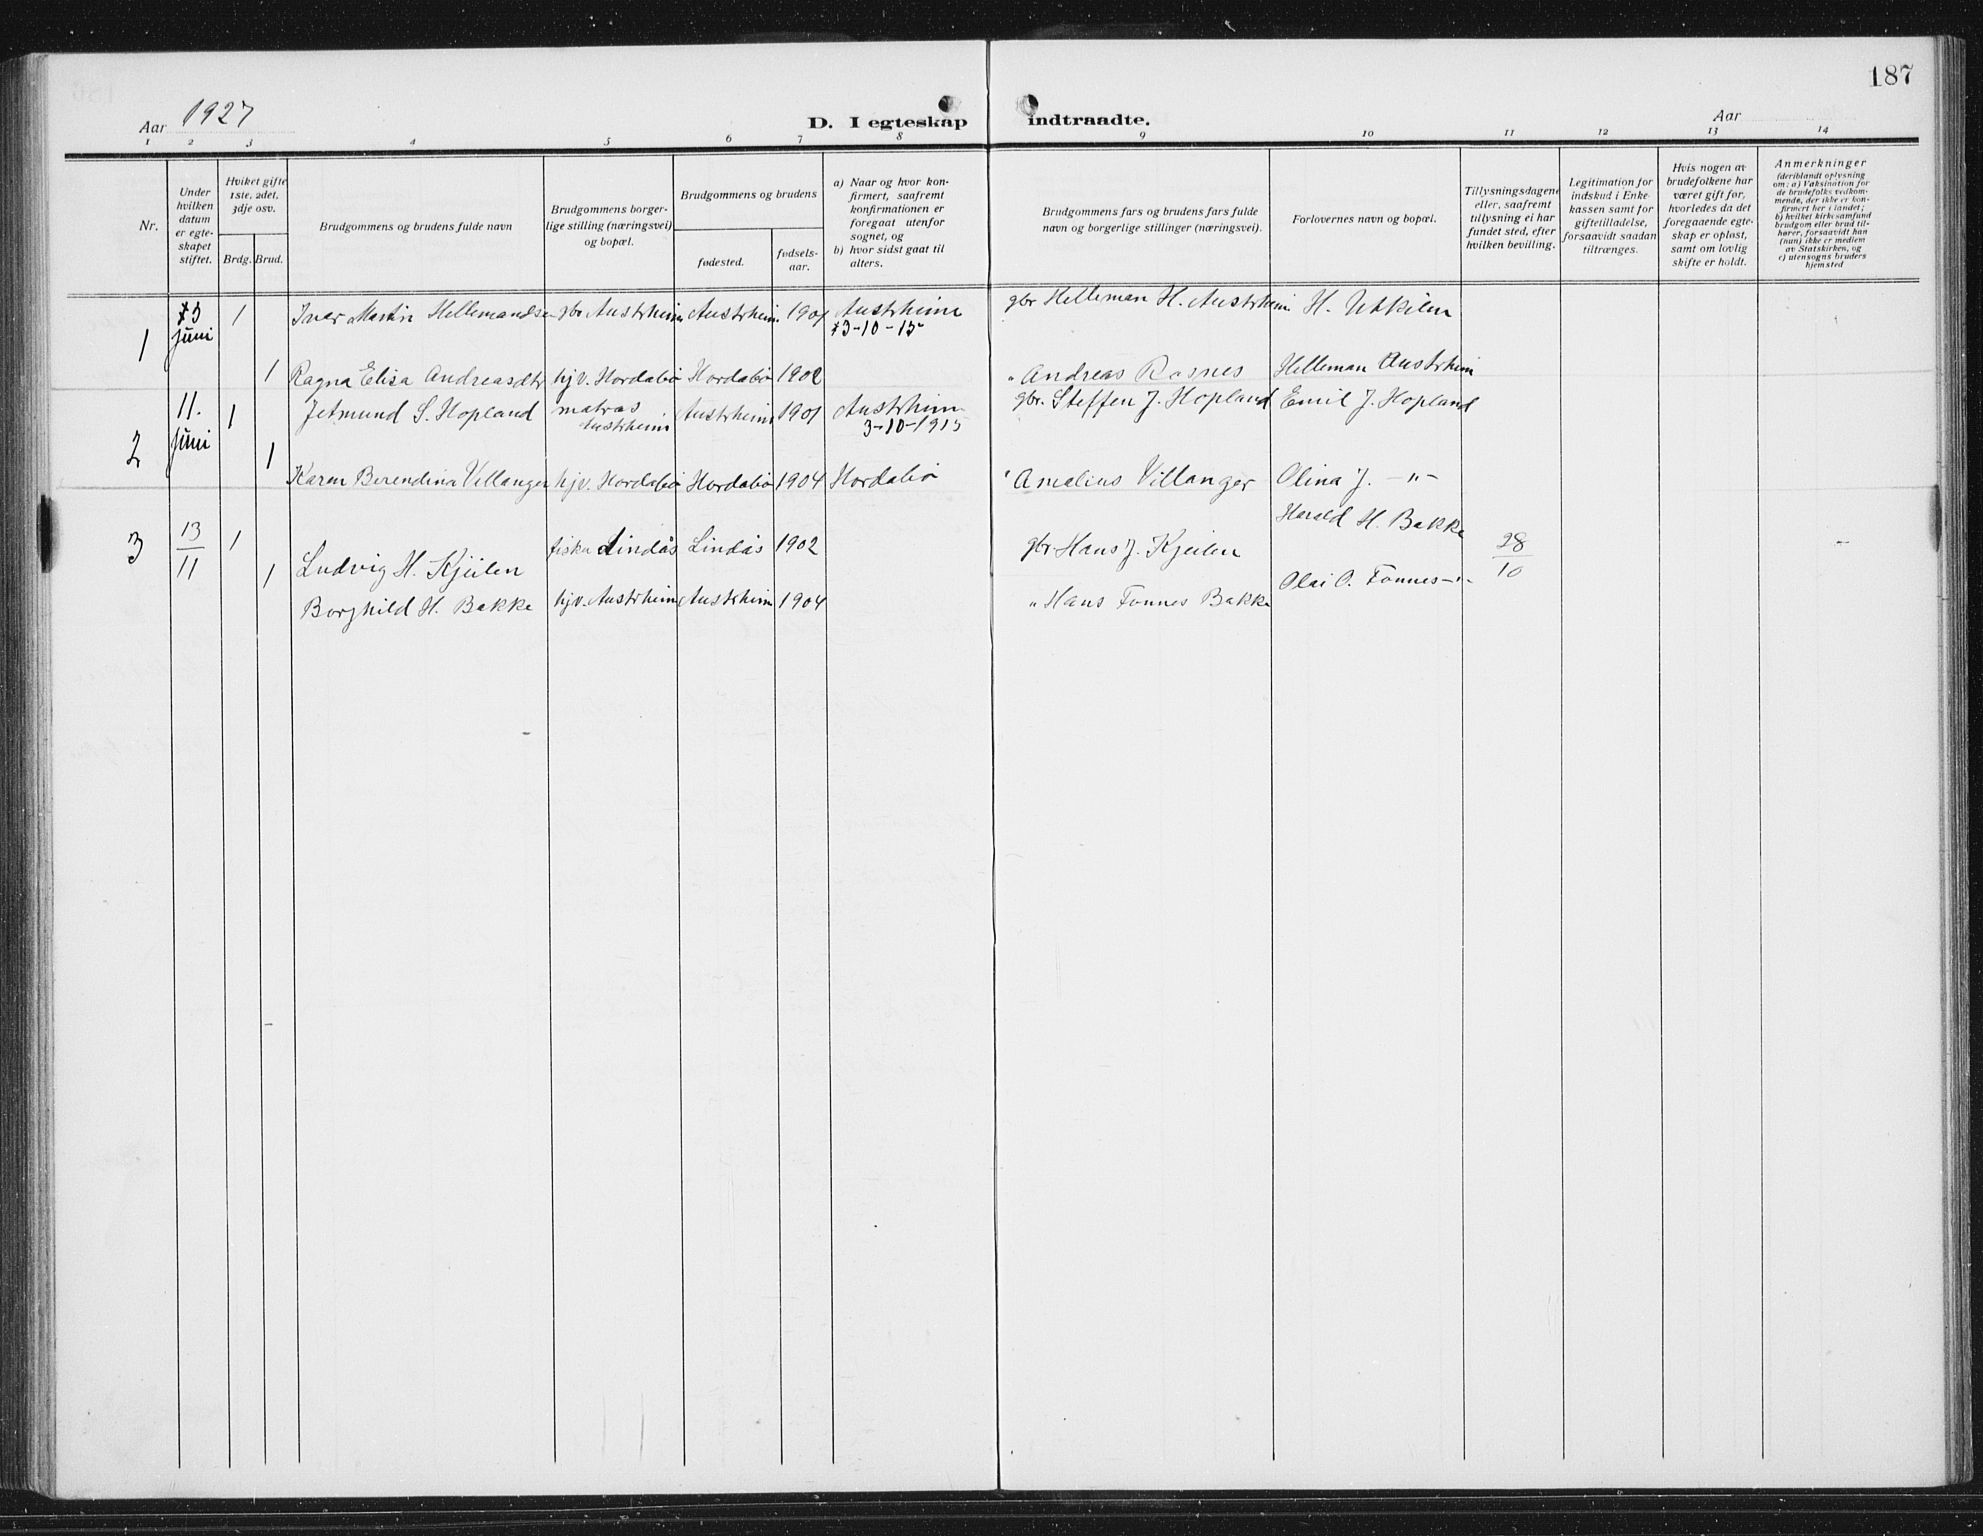 187
Aar 1927
D. I egteskap indtraadte.
Aar
1 2 3 4 5 6 7 8 9 10 11 12 13 14
Nr.
Under hvilken datum er egteskapet stiftet.
Hvilket gifte 1ste, 2det, 3dje osv.
Brdg. Brud.
Brudgommens og brudens fulde navn
Brudgommens borgerlige stilling (næringsvei) og bopæl.
Brudgommens og brudens
fødested.
fødselsaar.
a) Naar og hvor konfirmert, saafremt konfirmationen er foregaat utenfor sognet, og
b) hvor sidst gaat til alters.
Brudgommens fars og brudens fars fulde navn og borgerlige stillinger (næringsvei).
Forlovernes navn og bopæl.
Tillysningsdagene eller, saafremt tillysning ei har fundet sted, efter hvilken bevilling.
Legitimation for indskud i Enkekassen samt for giftetilladelse, forsaavidt saadan tiltrænges.
Hvis nogen av brudefolkene har været gift før, hvorledes da det foregaaende egteskap er opløst, samt om lovlig skifte er holdt.
Anmerkninger (deriblandt oplysning om: a) Vaksination for de brudefolks vedkommende, der ikke er konfirmert her i landet; b) hvilket kirkesamfund brudgom eller brud tilhører, forsaavidt han (hun) ikke er medlem av Statskirken, og c) utensogns bruders hjemsted
1 juni 1 Ivar Martin Hellemandsen gbr Austrheim Austrheim 1901 Austrheim gbr Helleman H. Austrheim H. Utkilen
3-10-15
1 Ragna Elisa Andreasdtr hjv. Hordabø Hordabø 1902 " Andreas Rosnes Helleman Austrheim
2 11. juni 1 Jetmund S. Hopland matros Austrheim Austrheim 1901 Austrheim gbr. Steffen J. Hopland Emil J. Hopland
3-10-1915
1 Karen Berendina Villanger hjv. Hordabø Hordabø 1904 Hordabø " Amalius Villanger Olina J. -"-
3 13/11 1 Ludvig H. Kjeilen fisker Lindås Lindås 1902 gbr Hans J. Kjeilen Harald H. Bakke 28/10
1 Borghild H. Bakke hjv. Austrheim Austrheim 1904 " Hans Fonnes Bakke Olai O. Fonnes -"-